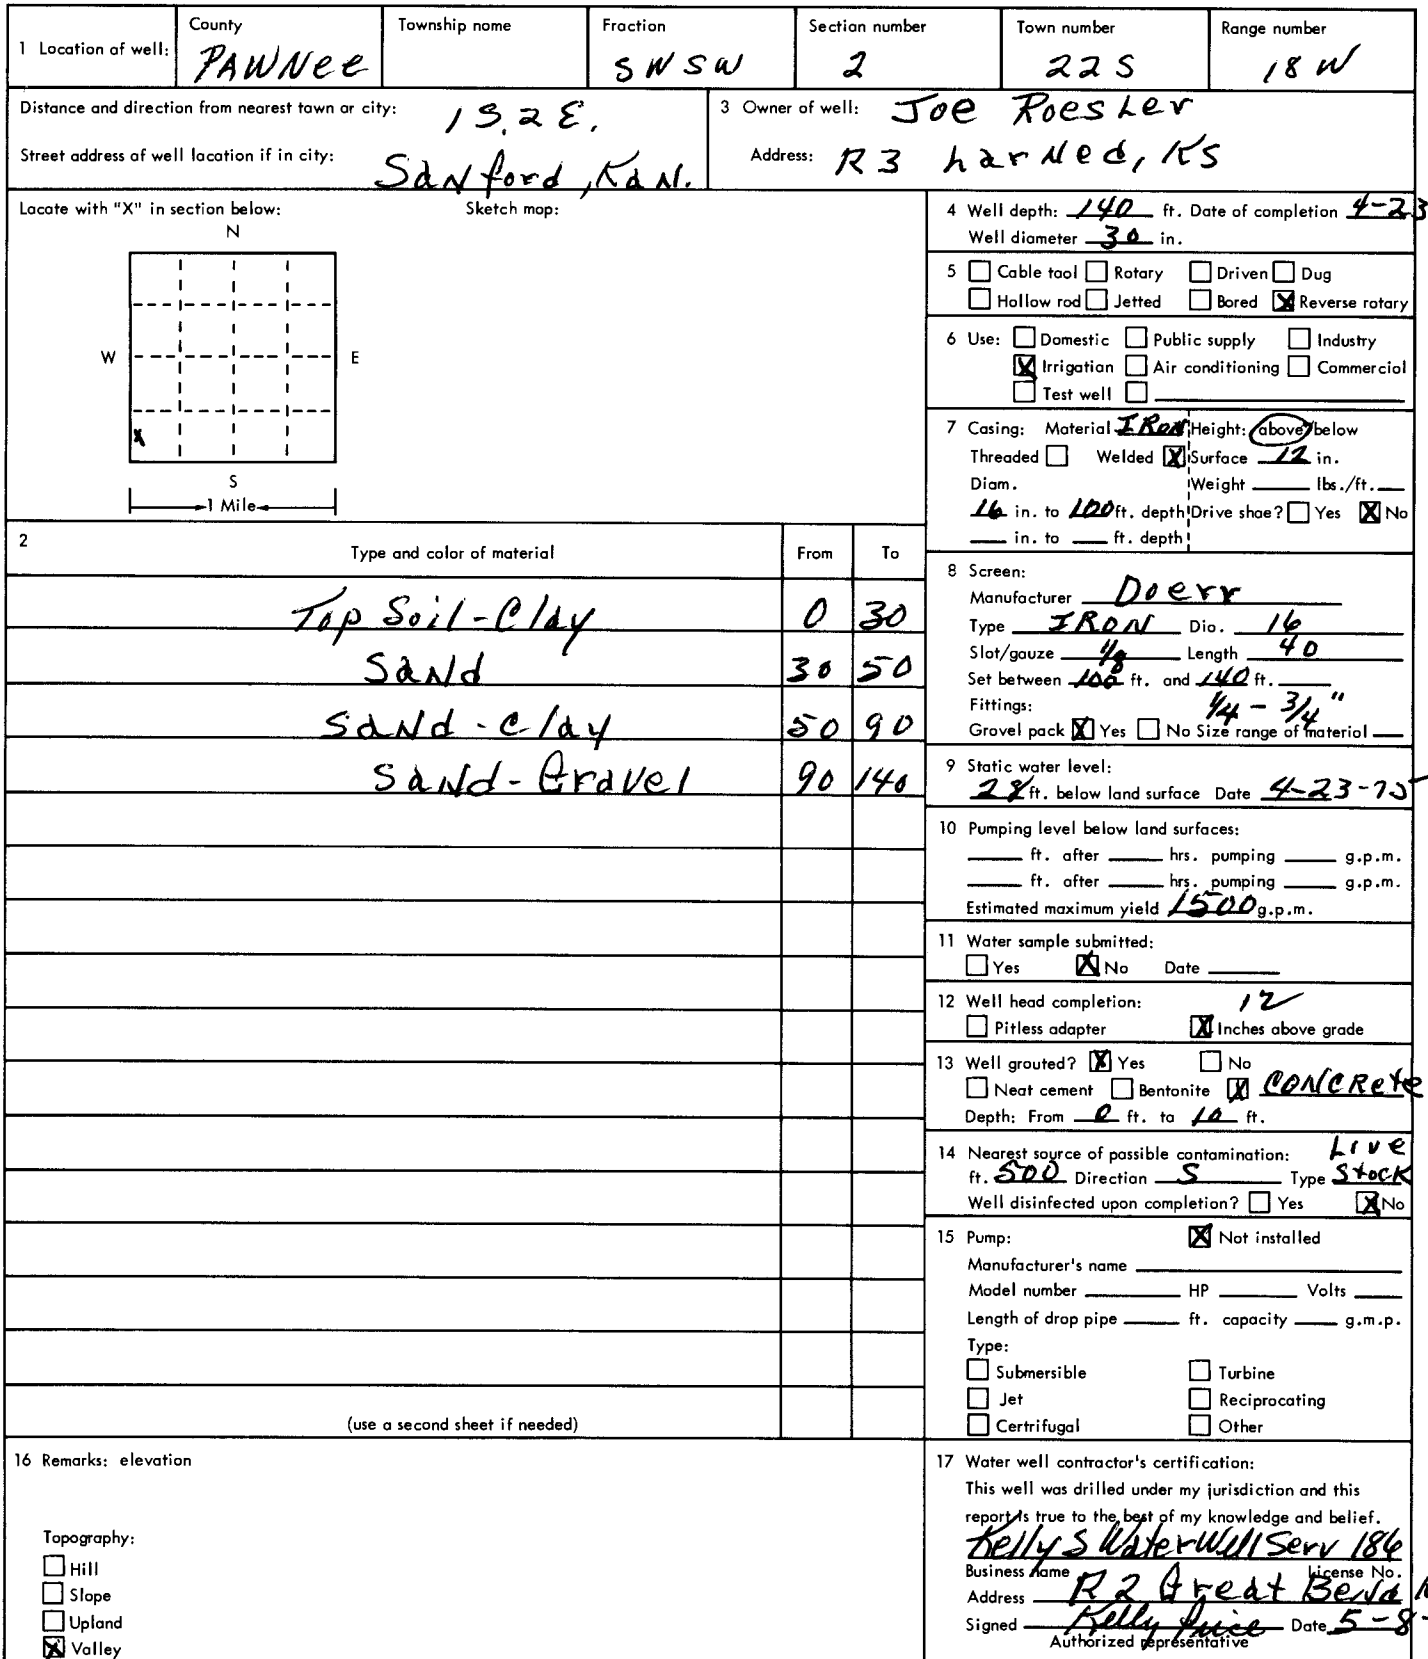 1 Location of well: County PAWNee Township name Fraction SWSW Section number 2 Town number 22S Range number 18W
Distance and direction from nearest town or city: 1S.2E.
Street address of well location if in city: Sanford, Kan.
3 Owner of well: Joe Roesler
Address: R3 Larned, KS
Locate with "X" in section below: Sketch map:
N
W E
X
S
1 Mile
2 Type and color of material From To
Top Soil-Clay 0 30
Sand 30 50
Sand-Clay 50 90
Sand-Gravel 90 140
(use a second sheet if needed)
4 Well depth: 140 ft. Date of completion 4-23
Well diameter 30 in.
5 Cable tool Rotary Driven Dug
Hollow rod Jetted Bored X Reverse rotary
6 Use: Domestic Public supply Industry
X Irrigation Air conditioning Commercial
Test well
7 Casing: Material IRON Height: above/below
Threaded Welded X Surface 12 in.
Diam. Weight lbs./ft.
16 in. to 100 ft. depth Drive shoe? Yes X No
in. to ft. depth
8 Screen:
Manufacturer Doerr
Type IRON Dia. 16
Slot/gauze 1/8 Length 40
Set between 100 ft. and 140 ft.
Fittings: 1/4 - 3/4"
Gravel pack X Yes No Size range of material
9 Static water level:
28 ft. below land surface Date 4-23-75
10 Pumping level below land surfaces:
ft. after hrs. pumping g.p.m.
ft. after hrs. pumping g.p.m.
Estimated maximum yield 1500 g.p.m.
11 Water sample submitted:
Yes X No Date
12 Well head completion: 12
Pitless adapter X Inches above grade
13 Well grouted? X Yes No
Neat cement Bentonite X CONCRete
Depth: From 0 ft. to 10 ft.
14 Nearest source of possible contamination: Live
ft. 500 Direction S Type Stock
Well disinfected upon completion? Yes X No
15 Pump: X Not installed
Manufacturer's name
Model number HP Volts
Length of drop pipe ft. capacity g.m.p.
Type:
Submersible Turbine
Jet Reciprocating
Certrifugal Other
16 Remarks: elevation
Topography:
Hill
Slope
Upland
X Valley
17 Water well contractor's certification:
This well was drilled under my jurisdiction and this
report is true to the best of my knowledge and belief.
Kellys Water Well Serv 186
Business name License No.
Address R2 Great Bend
Signed Kelly Price Date 5-8-
Authorized representative